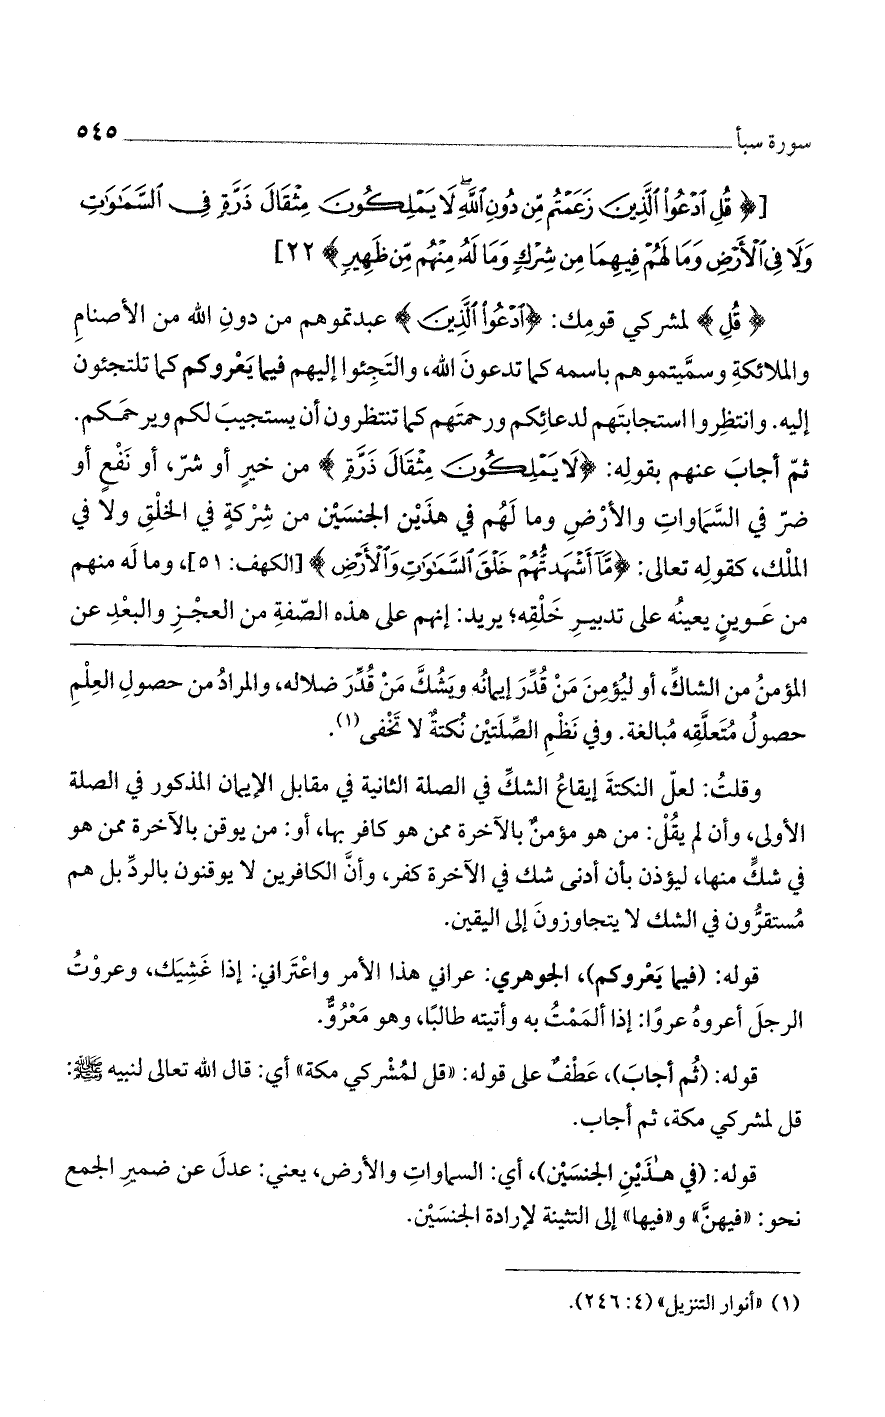 سورة سبأ ٥٤٥
[﴿قُلِ ٱدْعُوا۟ ٱلَّذِينَ زَعَمْتُم مِّن دُونِ ٱللَّهِ ۖ لَا يَمْلِكُونَ مِثْقَالَ ذَرَّةٍ فِى ٱلسَّمَٰوَٰتِ
وَلَا فِى ٱلْأَرْضِ وَمَا لَهُمْ فِيهِمَا مِن شِرْكٍ وَمَا لَهُۥ مِنْهُم مِّن ظَهِيرٍ﴾ ٢٢]
﴿قُلِ﴾ لمشركي قومِك: ﴿ٱدْعُوا۟ ٱلَّذِينَ﴾ عبدتموهم من دونِ الله من الأصنامِ
والملائكةِ وسمَّيتموهم باسمه كما تدعونَ الله، والتَجِئوا إليهم فيما يَعْروكم كما تلتجئون
إليه. وانتظِروا استجابتَهم لدعائِكم ورحمتَهم كما تنتظرون أن يستجيبَ لكم ويرحمَكم.
ثمّ أجابَ عنهم بقولِه: ﴿لَا يَمْلِكُونَ مِثْقَالَ ذَرَّةٍ﴾ من خيرٍ أو شرّ، أو نَفْعٍ أو
ضرّ في السَّمَاواتِ والأرْضِ وما لَهُم في هذَيْن الجنسَيْن من شِرْكةٍ في الخلْقِ ولا في
الملْك، كقولِه تعالى: ﴿مَّآ أَشْهَدتُّهُمْ خَلْقَ ٱلسَّمَٰوَٰتِ وَٱلْأَرْضِ﴾ [الكهف: ٥١]، وما لَه منهم
من عَوينٍ يعينُه على تدبيرِ خَلْقِه؛ يريد: إنهم على هذه الصّفةِ من العجْزِ والبعْدِ عن
المؤمنُ من الشاكِّ، أو ليُؤمِنَ مَنْ قُدِّرَ إيمانُه ويَشُكَّ مَنْ قُدِّرَ ضلاله، والمرادُ من حصولِ العِلْمِ
حصولُ مُتَعلَّقِه مُبالغة. وفي نَظْمِ الصِّلَتَيْن نُكتةٌ لا تَخْفى(١).
وقلتُ: لعلّ النكتةَ إيقاعُ الشكِّ في الصلة الثانية في مقابل الإيمان المذكور في الصلة
الأولى، وأن لم يقُلْ: من هو مؤمنٌ بالآخرة ممن هو كافر بها، أو: من يوقن بالآخرة ممن هو
في شكٍّ منها، ليؤذن بأن أدنى شك في الآخرة كفر، وأنَّ الكافرين لا يوقنون بالردِّ بل هم
مُستقرُّون في الشك لا يتجاوزونَ إلى اليقين.
قوله: (فيما يَعْروكم)، الجوهري: عراني هذا الأمر واعْتَراني: إذا غَشِيَك، وعروْتُ
الرجلَ أعروهُ عروًا: إذا ألمَمْتُ به وأتيته طالبًا، وهو مَعْرُوٌّ.
قوله: (ثُم أجابَ)، عَطْفٌ على قوله: «قل لمُشْركي مكة» أي: قال الله تعالى لنبيه ﷺ:
قل لمشركي مكة، ثم أجاب.
قوله: (في هـٰذَيْنِ الجنسَيْن)، أي: السماواتِ والأرض، يعني: عدلَ عن ضميرِ الجمع
نحو: «فيهنَّ» و«فيها» إلى التثنية لإرادة الجنسَيْن.
(١) «أنوار التنزيل» (٤: ٢٤٦).